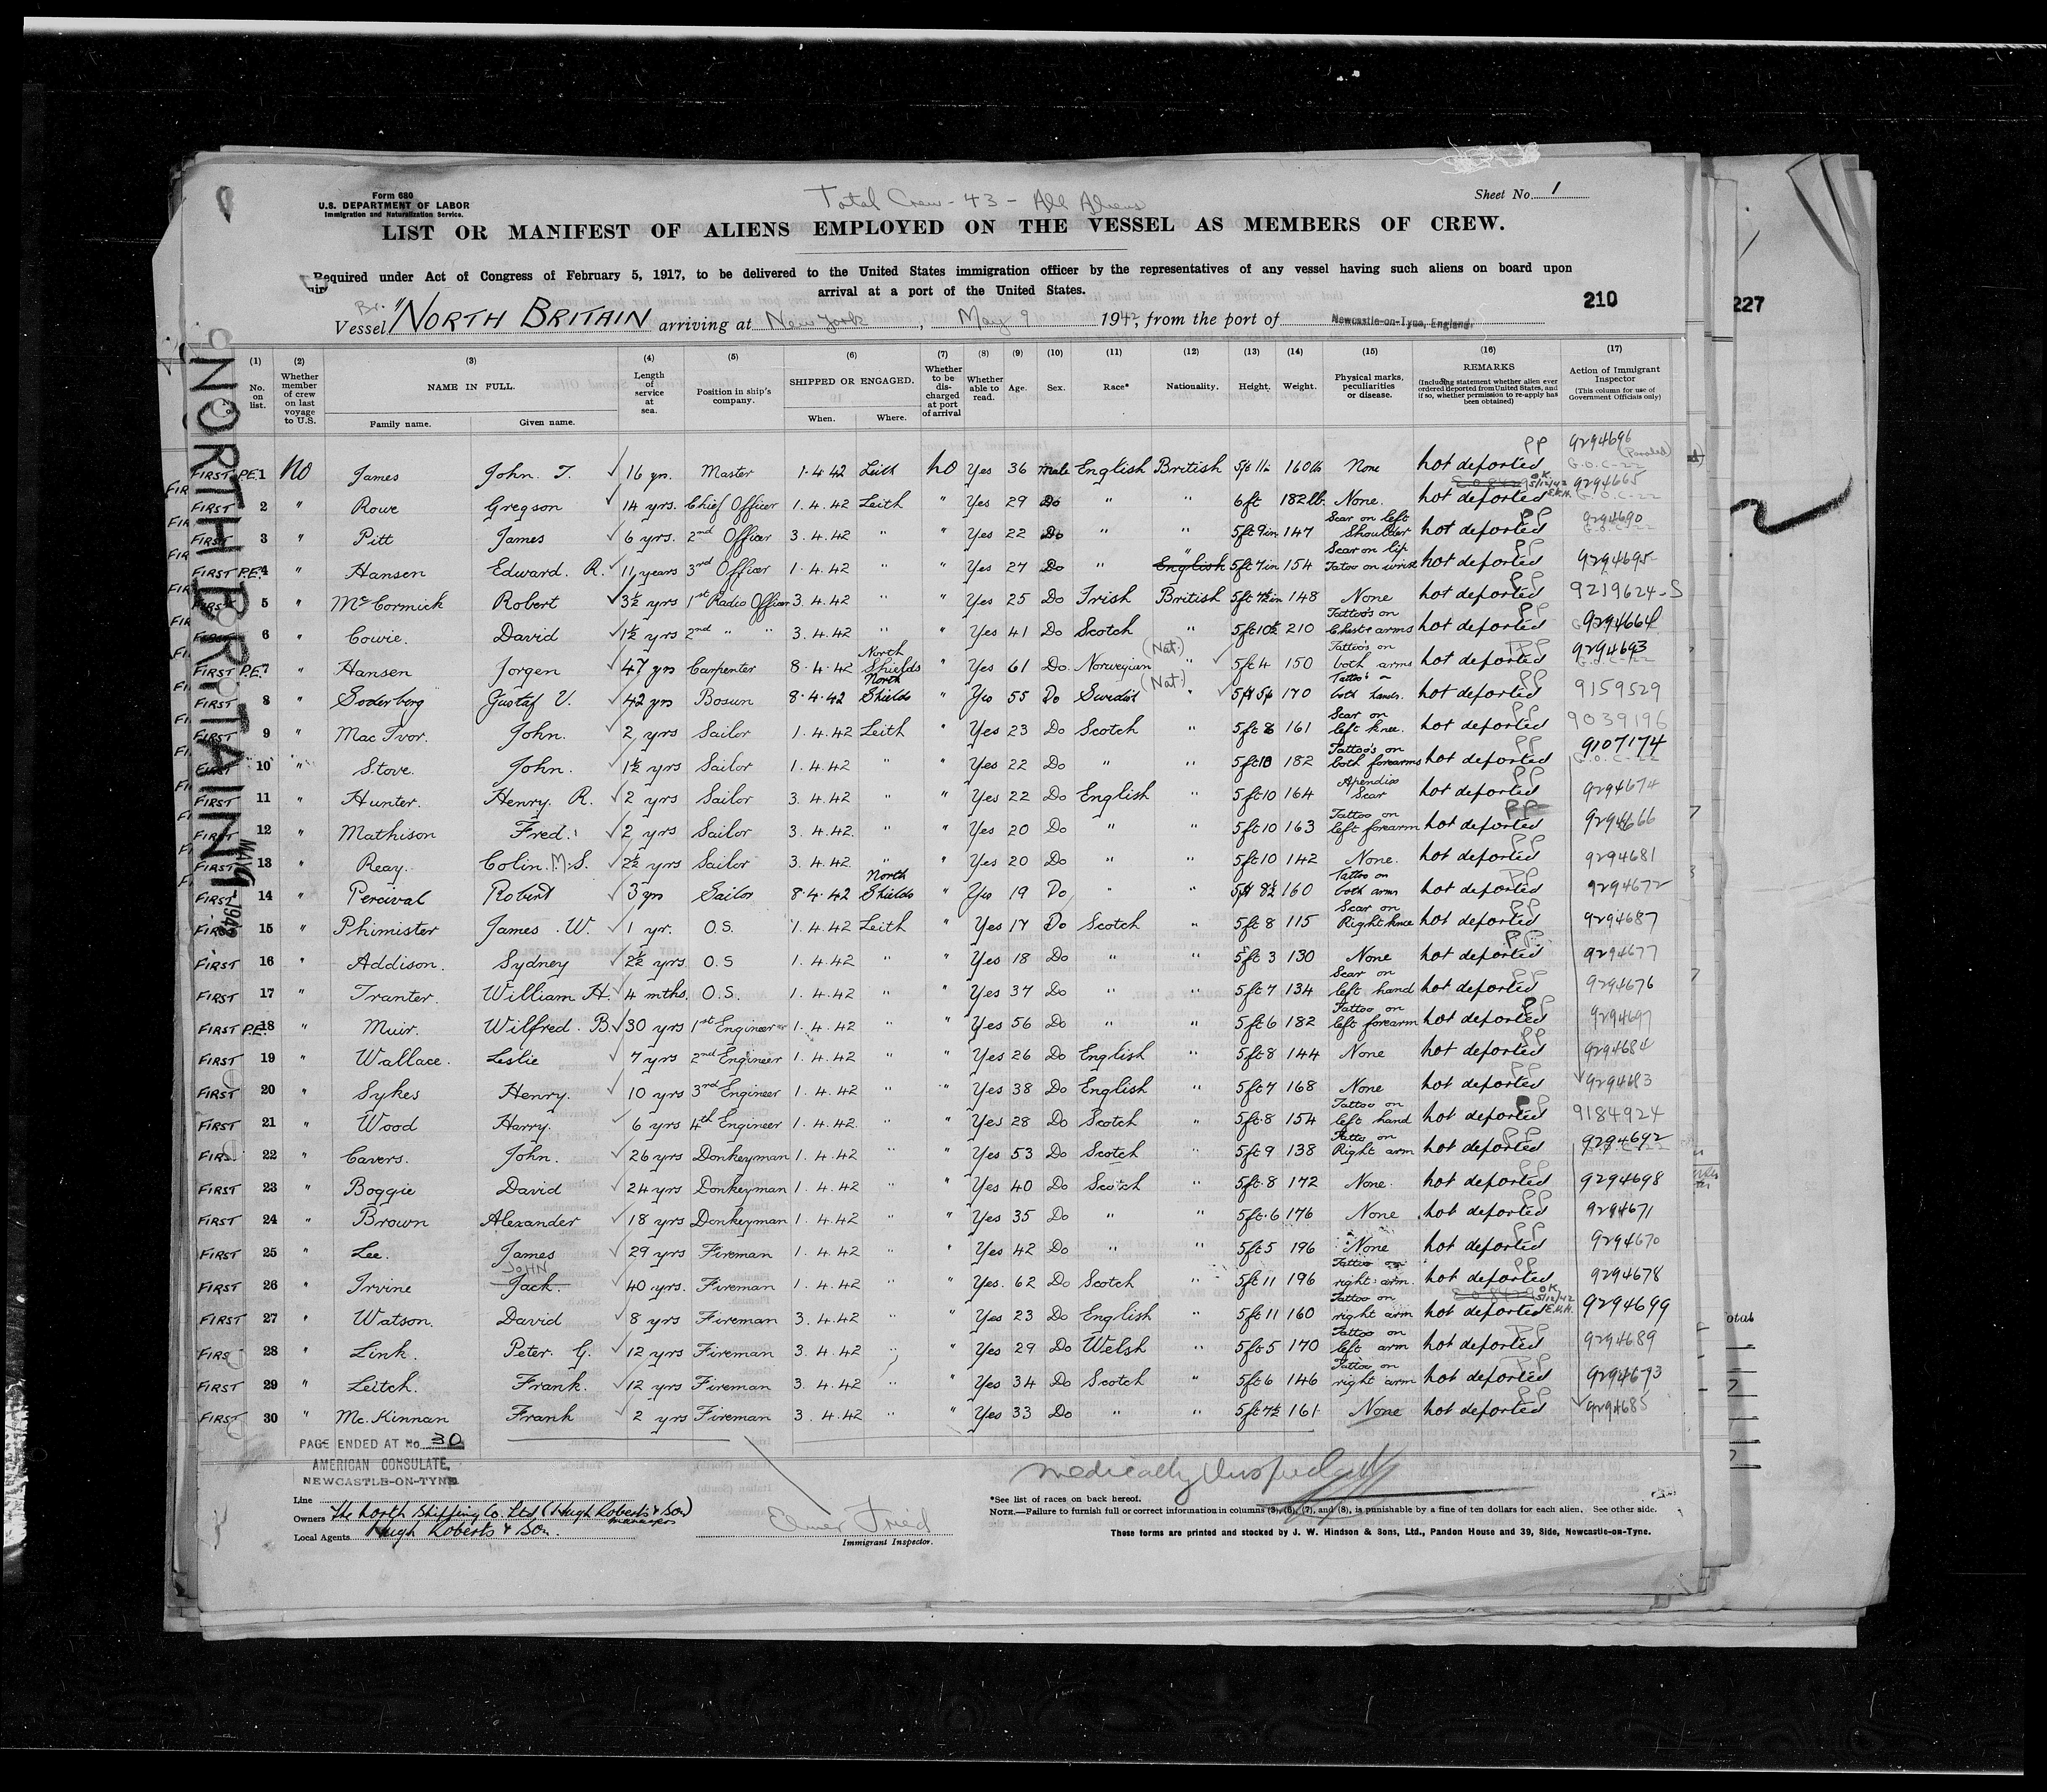 Form 680
U.S. DEPARTMENT OF LABOR
Immigration and Naturalization Service.
Total Crew - 43 - All Aliens
Sheet No. 1
LIST OR MANIFEST OF ALIENS EMPLOYED ON THE VESSEL AS MEMBERS OF CREW.
Required under Act of Congress of February 5, 1917, to be delivered to the United States immigration officer by the representatives of any vessel having such aliens on board upon
arrival at a port of the United States.
210
227
Br. Vessel "NORTH BRITAIN arriving at New York, May 9 1942, from the port of Newcastle-on-Tyne, England.
NORTH BRITAIN MAY 9 1942
(1) No. on list. (2) Whether member of crew on last voyage to U.S. (3) NAME IN FULL. Family name. Given name. (4) Length of service at sea. (5) Position in ship's company. (6) SHIPPED OR ENGAGED. When. Where. (7) Whether to be discharged at port of arrival (8) Whether able to read. (9) Age. (10) Sex. (11) Race* (12) Nationality. (13) Height. (14) Weight. (15) Physical marks, peculiarities or disease. (16) REMARKS (Including statement whether alien ever ordered deported from United States, and if so, whether permission to re-apply has been obtained) (17) Action of Immigrant Inspector (This column for use of Government Officials only)
FIRST P.E. 1 No James John. T. 16 yrs. Master 1.4.42 Leith No Yes 36 Male English British 5ft 11in 160lb None not deported PP 9294696 (Paroled)
FIRST 2 " Rowe Gregson 14 yrs. Chief Officer 1.4.42 Leith " Yes 29 Do " " 6ft 182lb. None. not deported OK 5/12/42 E.K.H. 9294665
FIRST 3 " Pitt James 6 yrs. 2nd Officer 3.4.42 " " Yes 22 Do " " 5ft 9in 147 Scar on left Shoulder not deported PP 9294690
FIRST P.E. 4 " Hansen Edward. R. 11 years 3rd Officer 1.4.42 " " Yes 27 Do " " English 5ft 7in 154 Scar on lip Tatoo on wrist not deported PP 9294695
FIRST 5 " McCormick Robert 3½ yrs 1st Radio Officer 3.4.42 " " Yes 25 Do Irish British 5ft 7½in 148 None not deported PP 9219624-S
FIRST 6 " Cowie. David 1½ yrs 2nd " " 3.4.42 " " Yes 41 Do Scotch " 5ft 10½ 210 Tattoo's on Chest & arms not deported PP 9294664
FIRST P.E. 7 " Hansen Jorgen 47 yrs Carpenter 8.4.42 North Shields " Yes 61 Do. Norwegian (Nat.) " 5ft 4 150 Tattoo's on both arms not deported PP 9294693
FIRST 8 " Soderberg Gustaf V. 42 yrs Bosun 8.4.42 North Shields " Yes 55 Do Swedish (Nat.) " 170 Tattoo's on both hands. not deported PP 9159529
FIRST 9 " Mac Ivor. John. 2 yrs Sailor 1.4.42 Leith " Yes 23 Do Scotch " 5ft 8 161 Scar on left knee. not deported PP 9039196
FIRST 10 " Stove. John. 1½ yrs Sailor 1.4.42 " " Yes 22 Do " " 5ft 10 182 Tattoo's on both forearms not deported PP 9107174
FIRST 11 " Hunter. Henry. R. 2 yrs Sailor 3.4.42 " " Yes 22 Do English " 5ft 10 164 Apendix Scar not deported PP 9294674
FIRST 12 " Mathison Fred. 2 yrs Sailor 3.4.42. " " Yes 20 Do " " 5ft 10 163 Tattoo on left forearm not deported PP 9294666
FIRST 13 " Reay. Colin. M.S. 2½ yrs Sailor 3.4.42. " " Yes 20 Do " " 5ft 10 142 None. not deported PP 9294681
FIRST 14 " Percival Robert 3 yrs Sailor 8.4.42 North Shields " Yes 19 Do " " 5ft 8½ 160 Tattoo on both arms not deported PP 9294672
FIRST 15 " Phimister James. W. 1 yr. O.S. 1.4.42 Leith " Yes 17 Do Scotch " 5ft 8 115 Scar on Right knee not deported PP 9294687
FIRST 16 " Addison. Sydney 2½ yrs O.S 1.4.42 " " Yes 18 Do " " 5ft 3 130 None not deported PP 9294677
FIRST 17 " Tranter. William H. 4 mths. O.S. 1.4.42 " " Yes 37 Do " " 5ft 7 134 Scar on left hand not deported PP 9294676
FIRST P.E. 18 " Muir. Wilfred. B. 30 yrs 1st Engineer 1.4.42 " " Yes 56 Do " " 5ft 6 182 Tattoo on left forearm not deported PP 9294697
FIRST 19 " Wallace. Leslie 7 yrs 2nd Engineer 1.4.42 " " Yes 26 Do English " 5ft 8 144 None not deported PP 9294684
FIRST 20 " Sykes Henry. 10 yrs 3rd Engineer 1.4.42 " " Yes 38 Do English " 5ft 7 168 None not deported PP 9294683
FIRST 21 " Wood Harry. 6 yrs 4th Engineer 1.4.42. " " Yes 28 Do Scotch " 5ft.8 154 Tattoo on left hand not deported PP 9184924
FIRST 22 " Cavers. John. 26 yrs Donkeyman 1.4.42 " " Yes 53 Do Scotch " 5ft 9 138 Tatto on Right arm not deported PP 9294692
FIRST 23 " Boggie David 24 yrs Donkeyman 1.4.42 " " Yes 40 Do Scotch " 5ft.8 172 None. not deported PP 9294698
FIRST 24 " Brown Alexander 18 yrs Donkeyman 1.4.42 " " Yes 35 Do " " 5ft.6 176 None not deported PP 9294671
FIRST 25 " Lee. James 29 yrs Fireman 1.4.42 " " Yes 42 Do " " 5ft 5 196 None not deported PP 9294670
FIRST 26 " Irvine JOHN Jack. 40 yrs. Fireman 1.4.42 " " Yes. 62 Do Scotch " 5ft 11 196 Tattoo on right arm. not deported PP 9294678
FIRST 27 " Watson. David 8 yrs Fireman 3.4.42 " " Yes 23 Do English " 5ft 11 160 Tattoo on right arm not deported OK 5/12/42 E.K.H. 9294699
FIRST 28 " Link. Peter. G. 12 yrs Fireman 3.4.42 " " Yes 29 Do Welsh " 5ft 5 170 Tattoo on left arm not deported PP 9294689
FIRST 29 " Leitch. Frank. 12 yrs Fireman 3.4.42 " " Yes 34 Do Scotch " 5ft 6 146 Tattoo on right arm not deported PP 9294673
FIRST 30 " Mc. Kinnan Frank 2 yrs Fireman 3.4.42 " " Yes 33 Do " " 5ft 7½ 161 None not deported PP 9294685
PAGE ENDED AT No. 30
AMERICAN CONSULATE,
NEWCASTLE-ON-TYNE
Medically
Line
Owners The North Shipping Co. Ltd (Hugh Roberts & Son) managers
Local Agents Hugh Roberts & Son.
Elmer Fried
Immigrant Inspector.
*See list of races on back hereof.
NOTE.—Failure to furnish full or correct information in columns (3), (6), (7), and (8), is punishable by a fine of ten dollars for each alien. See other side.
These forms are printed and stocked by J. W. Hindson & Sons, Ltd., Pandon House and 39, Side, Newcastle-on-Tyne.